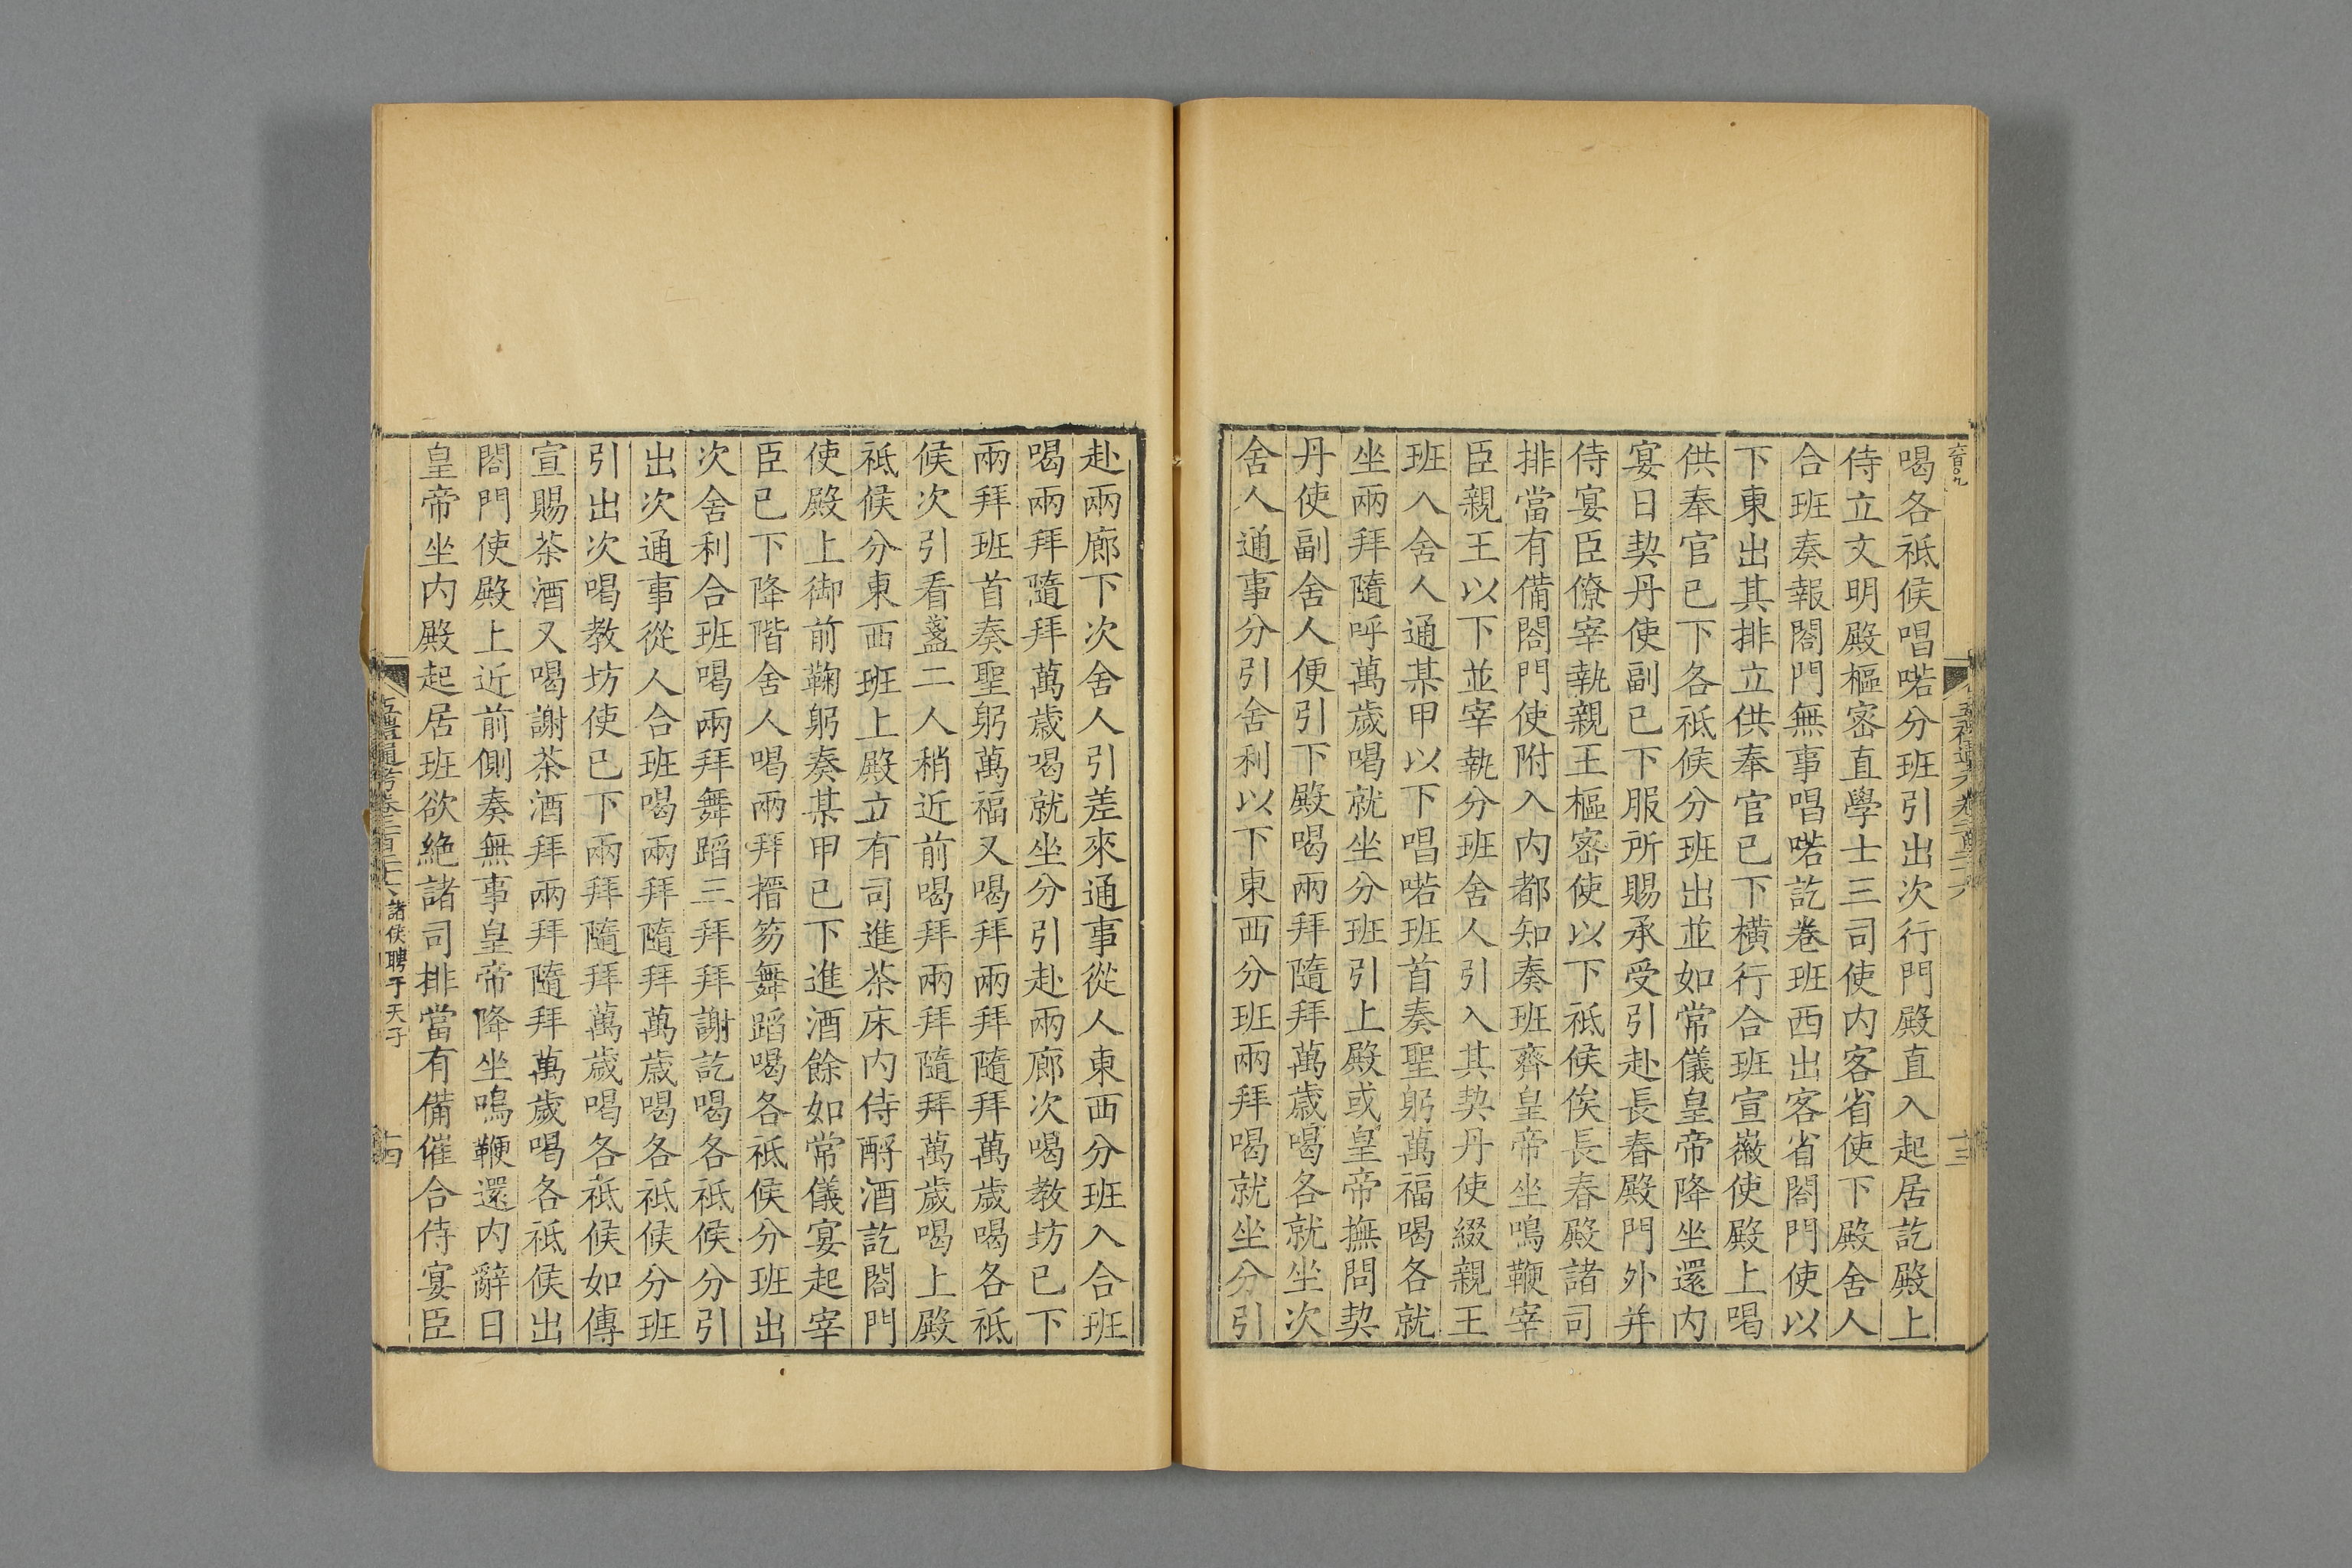 喝各祗候唱喏分班引出次行門殿直入起居訖殿上
侍立文明殿樞密直學士三司使内客省使下殿舍人
合班奏報閤門無事唱喏訖卷班西出客省閤門使以
下東出其排立供奉官已下橫行合班宣徽使殿上喝
供奉官已下各祗候分班出並如常儀皇帝降坐還内
宴日契丹使副已下服所賜承受引赴長春殿門外并
侍宴臣僚宰執親王樞密使以下祗候俟長春殿諸司
排當有備閤門使附入内都知奏班齊皇帝坐鳴鞭宰
臣親王以下並宰執分班舍人引入其契丹使綴親王
班入舍人通某甲以下唱喏班首奏聖躬萬福喝各就
坐兩拜隨呼萬歲喝就坐分班引上殿或皇帝撫問契
丹使副舍人便引下殿喝兩拜隨拜萬歲喝各就坐次
舍人通事分引舍利以下東西分班兩拜喝就坐分引
赴兩廊下次舍人引差來通事從人東西分班入合班
喝兩拜隨拜萬歲喝就坐分引赴兩廊次喝教坊已下
兩拜班首奏聖躬萬福又喝拜兩拜隨拜萬歲喝各祗
候次引看盞二人稍近前喝拜兩拜隨拜萬歲喝上殿
祗候分東西班上殿立有司進茶床内侍酹酒訖閤門
使殿上御前鞠躬奏某甲已下進酒餘如常儀宴起宰
臣已下降階舍人喝兩拜搢笏舞蹈喝各祗候分班出
次舍利合班喝兩拜舞蹈三拜拜謝訖喝各祗候分引
出次通事從人合班喝兩拜隨拜萬歲喝各祗候分班
引出次喝教坊使已下兩拜隨拜萬歲喝各祗候如傳
宣賜茶酒又喝謝茶酒拜兩拜隨拜萬歲喝各祗候出
閤門使殿上近前側奏無事皇帝降坐鳴鞭還内辭日
皇帝坐内殿起居班欲絶諸司排當有備催合侍宴臣
諸侯聘于天子
十四